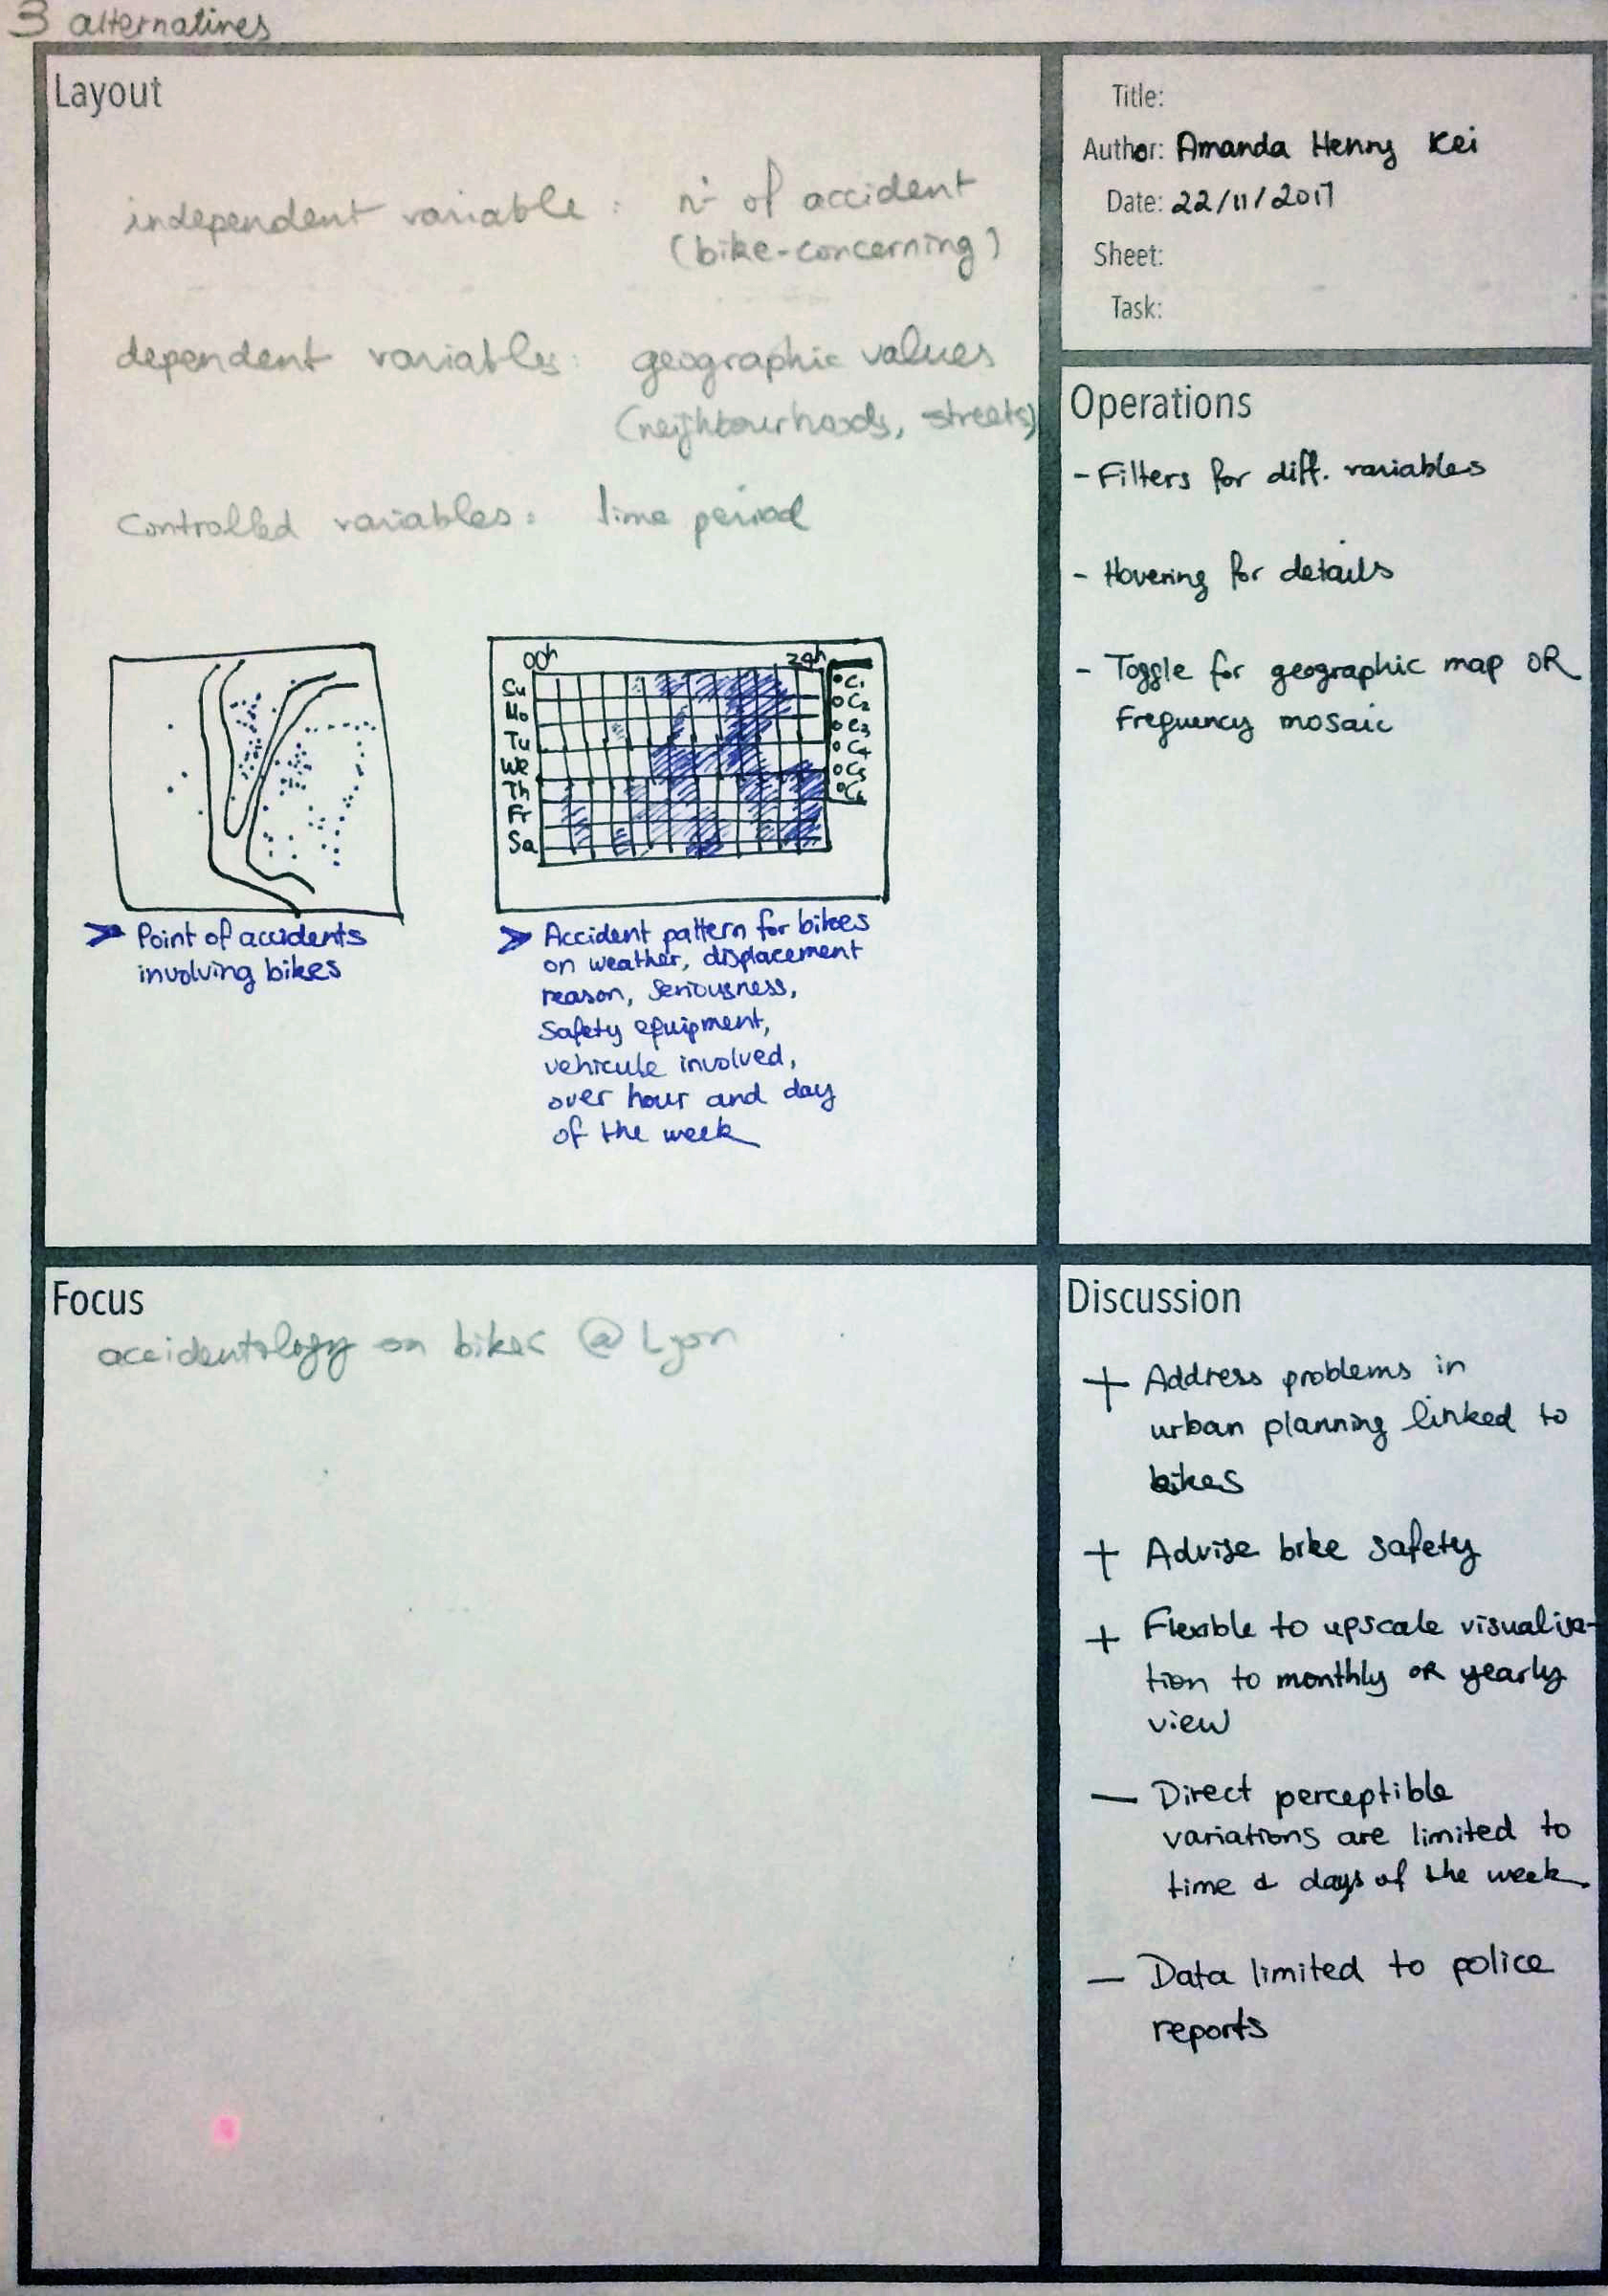 3 alternatives
Layout
independent variable : n° of accident
(bike-concerning)
dependent variables: geographic values
(neighbourhoods, streets)
Controlled variables: time period
00h 24h
Su
Mo
Tu
We
Th
Fr
Sa
C1
C2
C3
C4
C5
C6
> Point of accidents
involving bikes
> Accident pattern for bikes
on weather, displacement
reason, seriousness,
safety equipment,
vehicule involved,
over hour and day
of the week
Title:
Author: Amanda Henry Kei
Date: 22/11/2017
Sheet:
Task:
Operations
- Filters for diff. variables
- Hovering for details
- Toggle for geographic map OR
Frequency mosaic
Focus
accidentology on bikes @ Lyon
Discussion
+ Address problems in
urban planning linked to
bikes
+ Advise bike safety
+ Flexible to upscale visualiza-
tion to monthly OR yearly
view
— Direct perceptible
variations are limited to
time & days of the week.
— Data limited to police
reports